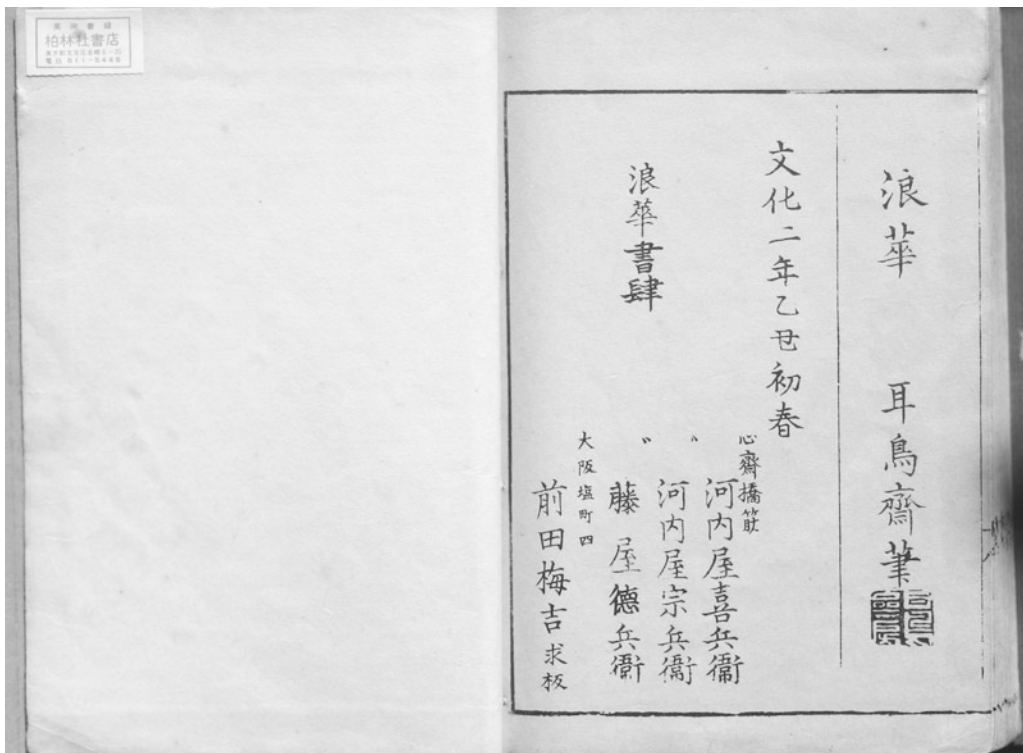 浪華 耳鳥齋筆
文化二年乙丑初春
浪華書肆
心齋橋筋
河内屋喜兵衞
〃
河内屋宗兵衞
〃
藤屋德兵衞
大阪塩町四
前田梅吉求板
柏林社書店